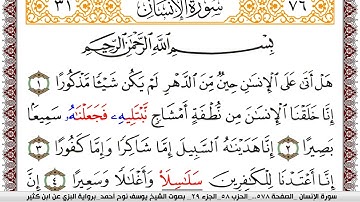 ٣١ سُورَةُ الإِنسَانِ ٧٦
بِسْمِ اللَّهِ الرَّحْمَٰنِ الرَّحِيمِ
هَلْ أَتَىٰ عَلَى الْإِنسَانِ حِينٌ مِّنَ الدَّهْرِ لَمْ يَكُن شَيْئًا مَّذْكُورًا ١
إِنَّا خَلَقْنَا الْإِنسَانَ مِن نُّطْفَةٍ أَمْشَاجٍ نَّبْتَلِيهِۦ فَجَعَلْنَٰهُۥ سَمِيعًۢا
بَصِيرًا ٢ إِنَّا هَدَيْنَٰهُ السَّبِيلَ إِمَّا شَاكِرًا وَإِمَّا كَفُورًا ٣
إِنَّا أَعْتَدْنَا لِلْكَٰفِرِينَ سَلَٰسِلَا۟ وَأَغْلَٰلًا وَسَعِيرًا ٤ إِنَّ
سورة الإنسان .. الصفحة ٥٧٨ .. الحزب ٥٨ .. الجزء ٢٩ .. بصوت الشيخ يوسف نوح أحمد .. برواية البزي عن ابن كثير